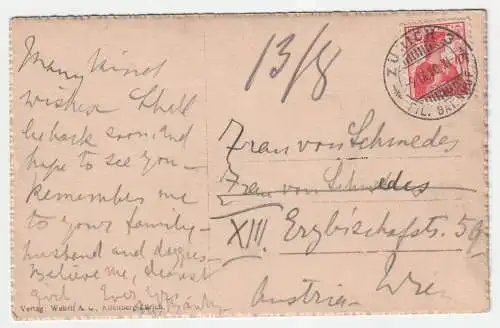 Many kind
wishes Shall
be back soon, and
hope to see you –
Remember me
to your family –
husband and
believe me, dearest
girl Ever
Verlag: Wehrli A. G., Kilchberg-Zürich.
13/8
ZÜRICH 3
FIL. BAHNHOF
Frau von Schmedes
Frau von Schmedes
XIII. Erzbischofstr. 59
Austria – Wien